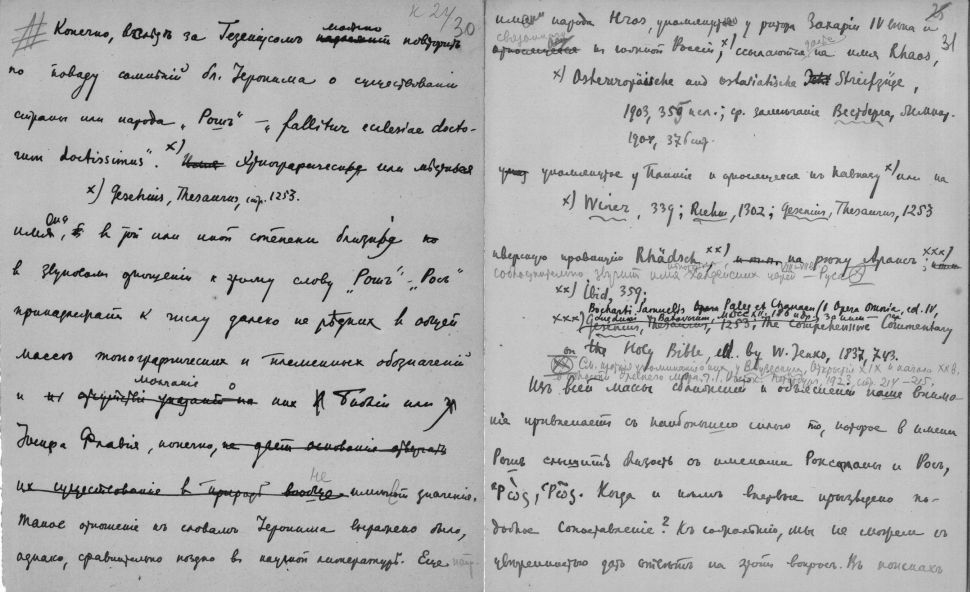 к 24/30
Конечно, вслѣдъ за Гезеніусомъ можно повторить
по поводу сомнѣній бл. Іеронима о существованіи
страны или народа „Рошъ“ – „fallitur ecclesiae docto-
rum doctissimus“. x) Этнографическія или мѣстныя
x) Gesenius, Thesaurus, стр. 1253.
имена, въ той или иной степени близкія
въ звуковомъ отношеніи къ этому слову „Рошъ“ – „Росъ“
принадлежатъ къ числу далеко не рѣдкихъ въ общей
массѣ топографическихъ и племенныхъ обозначеній
и молчаніе о нихъ Библіи или
Іосифа Флавія, конечно, не даетъ основанія отвергать
ихъ существованіе въ природѣ вообще не имѣетъ значенія.
Такое отношеніе къ словамъ Іеронима выражено было,
однако, сравнительно поздно въ научной литературѣ. Еще
31
имя народа Hros, упомянутое у ритора Захаріи IV вѣка и
связанное
относящееся къ южной Россіи; x) ссылаются на имя Rhaos,
x) Osteuropäische und ostasiatische Streifzüge,
1903, 359 исл.; ср. замѣчаніе Вестберга,
376 стр.
упомянутое у Плинія и относящееся къ Кавказу x) или на
x) Winer, 339; Riehm, 1302; Gesenius, Thesaurus, 1253
иверскую провинцію Rhädsch, xx) на рѣку Араксъ; xxx)
созвучно звучитъ имя Халдейскихъ царей – Руса
xx) Ibid, 359.
Bocharti Samuelis Opera Omnia, ed. IV,
xxx) Gesenius, Thesaurus, 1253; The Comprehensive Commentary
on the Holy Bible, ed. by W. Jenks, 1837, 743.
1923, стр. 214–215.
Изъ всей массы сближеній и объясненій наше внима-
ніе привлекаетъ съ наибольшею силою то, которое въ имени
Рошъ слышитъ близость съ именами Роксоланы и Росъ,
Ῥώς, Ῥῶς. Когда и кѣмъ впервые произведено по-
добное сопоставленіе? Къ сожалѣнію, мы не можемъ съ
увѣренностью дать отвѣтъ на этотъ вопросъ. Въ поискахъ